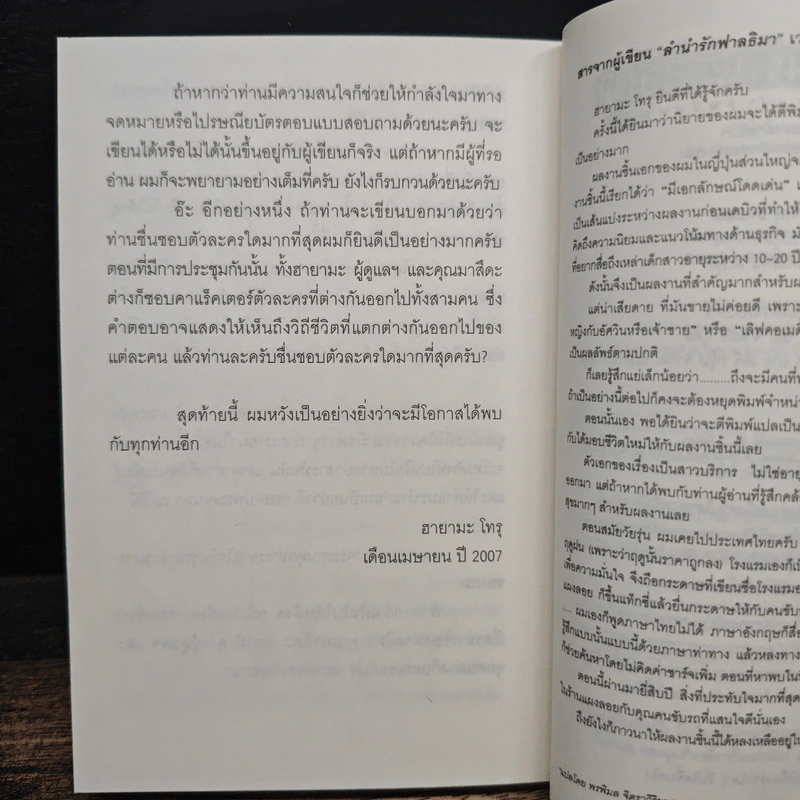 ถ้าหากว่าท่านมีความสนใจก็ช่วยให้กำลังใจมาทาง
จดหมายหรือไปรษณียบัตรตอบแบบสอบถามด้วยนะครับ จะ
เขียนได้หรือไม่ได้นั้นขึ้นอยู่กับผู้เขียนก็จริง แต่ถ้าหากมีผู้ที่รอ
อ่าน ผมก็จะพยายามอย่างเต็มที่ครับ ยังไงก็รบกวนด้วยนะครับ
อ๊ะ อีกอย่างหนึ่ง ถ้าท่านจะเขียนบอกมาด้วยว่า
ท่านชื่นชอบตัวละครใดมากที่สุดผมก็ยินดีเป็นอย่างมากครับ
ตอนที่มีการประชุมกันนั้น ทั้งฮายามะ ผู้ดูแลฯ และคุณมาสึดะ
ต่างก็ชอบคาแร็คเตอร์ตัวละครที่ต่างกันออกไปทั้งสามคน ซึ่ง
คำตอบอาจแสดงให้เห็นถึงวิถีชีวิตที่แตกต่างกันออกไปของ
แต่ละคน แล้วท่านละครับชื่นชอบตัวละครใดมากที่สุดครับ?
สุดท้ายนี้ ผมหวังเป็นอย่างยิ่งว่าจะมีโอกาสได้พบ
กับทุกท่านอีก
ฮายามะ โทรุ
เดือนเมษายน ปี 2007
สารจากผู้เขียน "ลำนำรักฟาลธิมา"
ฮายามะ โทรุ ยินดีที่ได้รู้จักครับ
ครั้งนี้ได้ยินมาว่านิยายของผมจะได้ตีพิม
เป็นอย่างมาก
ผลงานชิ้นเอกของผมในญี่ปุ่นส่วนใหญ่จะ
งานชิ้นนี้เรียกได้ว่า "มีเอกลักษณ์โดดเด่น"
เป็นเส้นแบ่งระหว่างผลงานก่อนเดบิวที่ทำให้
คิดถึงความนิยมและแนวโน้มทางด้านธุรกิจ
ที่อยากสื่อถึงเหล่าเด็กสาวอายุระหว่าง 10-20 ปี
ดังนั้นจึงเป็นผลงานที่สำคัญมากสำหรับผ
แต่น่าเสียดาย ที่มันขายไม่ค่อยดี เพราะ
หญิงกับอัศวินหรือเจ้าชาย" หรือ "เลิฟคอเมดี
เป็นผลลัพธ์ตามปกติ
ก็เลยรู้สึกแย่เล็กน้อยว่า.........ถึงจะมีคนที่
ถ้าเป็นอย่างนี้ต่อไปก็คงจะต้องหยุดพิมพ์จำหน่า
ตอนนั้นเอง พอได้ยินว่าจะตีพิมพ์แปลเป็น
กับได้มอบชีวิตใหม่ให้กับผลงานชิ้นนี้เลย
ตัวเอกของเรื่องเป็นสาวบริการ ไม่ใช่อายุ
ออกมา แต่ถ้าหากได้พบกับท่านผู้อ่านที่รู้สึกคล้
สุขมากๆ สำหรับผลงานเลย
ตอนสมัยวัยรุ่น ผมเคยไปประเทศไทยครับ
ฤดูฝน (เพราะว่าฤดูนั้นราคาถูกลง) โรงแรมเองก็เป็
เพื่อความมั่นใจ จึงถือกระดาษที่เขียนชื่อโรงแรม
แผงลอย ก็ขึ้นแท็กซี่แล้วยื่นกระดาษให้กับคนขับ
... ผมเองก็พูดภาษาไทยไม่ได้ ภาษาอังกฤษก็สื่อ
รู้สึกแบบนั้นแบบนี้ด้วยภาษาท่าทาง แล้วหลงทาง
ก็ช่วยค้นหาโดยไม่คิดค่าชาร์จเพิ่ม ตอนที่หาพบใน
ตอนนี้ผ่านมายี่สิบปี สิ่งที่ประทับใจมากที่สุด
ในร้านแผงลอยกับคุณคนขับรถที่แสนใจดีนั่นเอง
ถึงยังไงก็ภาวนาให้ผลงานชิ้นนี้ได้หลงเหลืออยู่ใน
แปลโดย พรพิมล